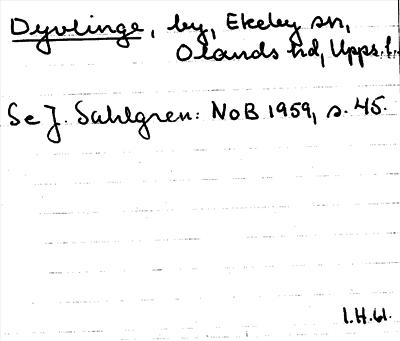 Dyvlinge, by, Ekeby sn,
Olands hd, Upps. l.
Se J. Sahlgren: NoB 1959, s. 45.
I.H.61.